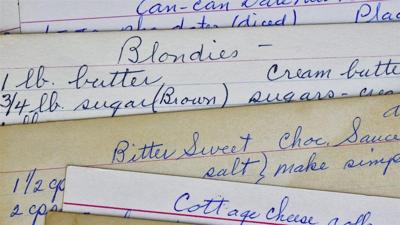 Can-can Date
(diced) Place
Blondies -
1 lb. butter Cream butter
3/4 lb. sugar (Brown) sugars-
Bitter Sweet Choc. Sauce
salt } make simp
1 1/2 cp
2 cps
Cottage Cheese